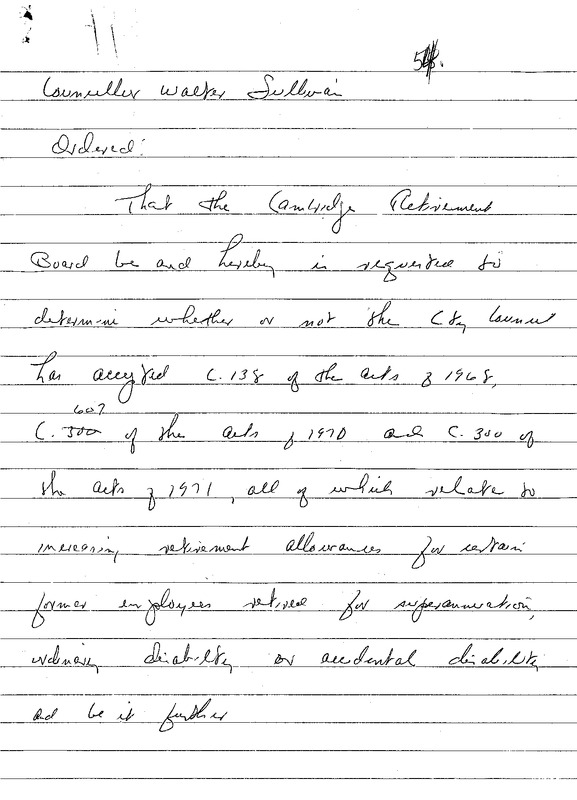 Councillor Walter Sullivan
Ordered:
That the Cambridge Retirement
Board be and hereby is requested to
determine whether or not the City Council
has accepted C. 138 of the acts of 1968,
607
C. 300 of the acts of 1970 and C. 300 of
the acts of 1971, all of which relate to
increasing retirement allowances for certain
former employees retired for superannuation,
ordinary disability or accidental disability
and be it further